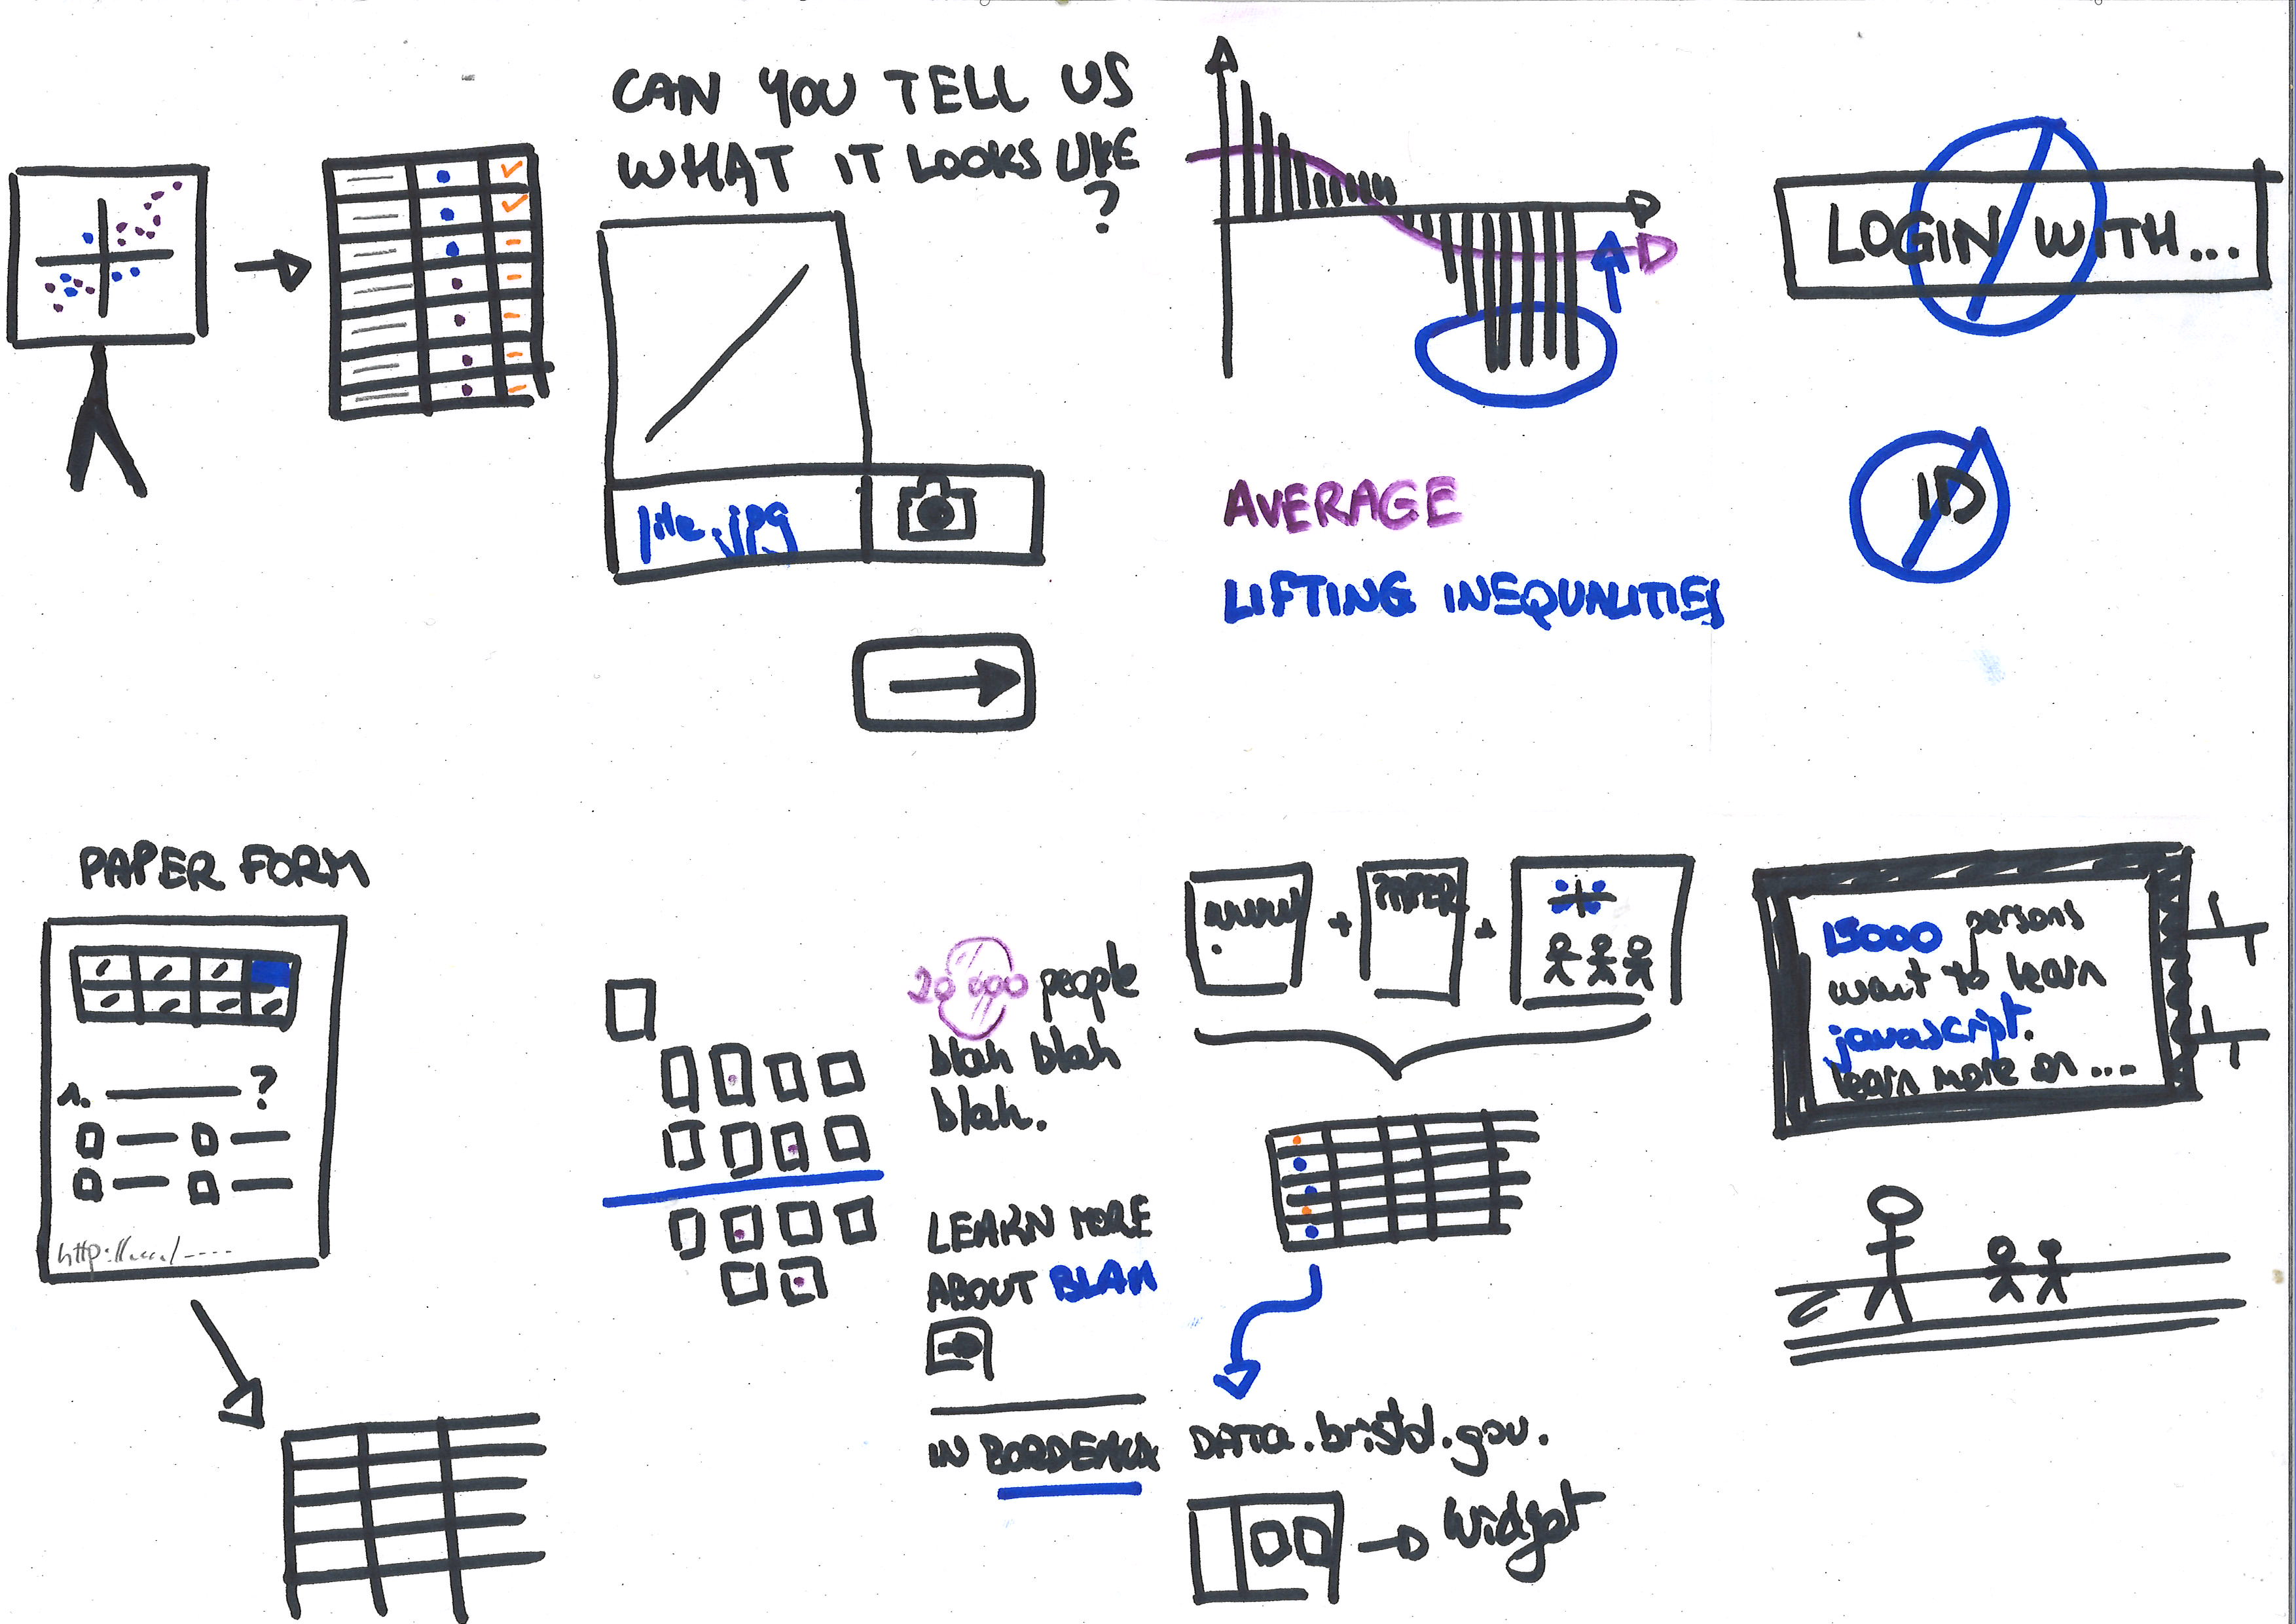 CAN YOU TELL US
WHAT IT LOOKS LIKE
?
file.jpg
AVERAGE
LIFTING INEQUALITIES
LOGIN WITH...
ID
PAPER FORM
1. ?
20 000 people
blah blah
blah.
LEARN MORE
ABOUT BLAH
IN BORDEAUX
WWW
+
PAPER
+
DATA.bristol.gov.
Widget
15000 persons
want to learn
javascript.
learn more on ...